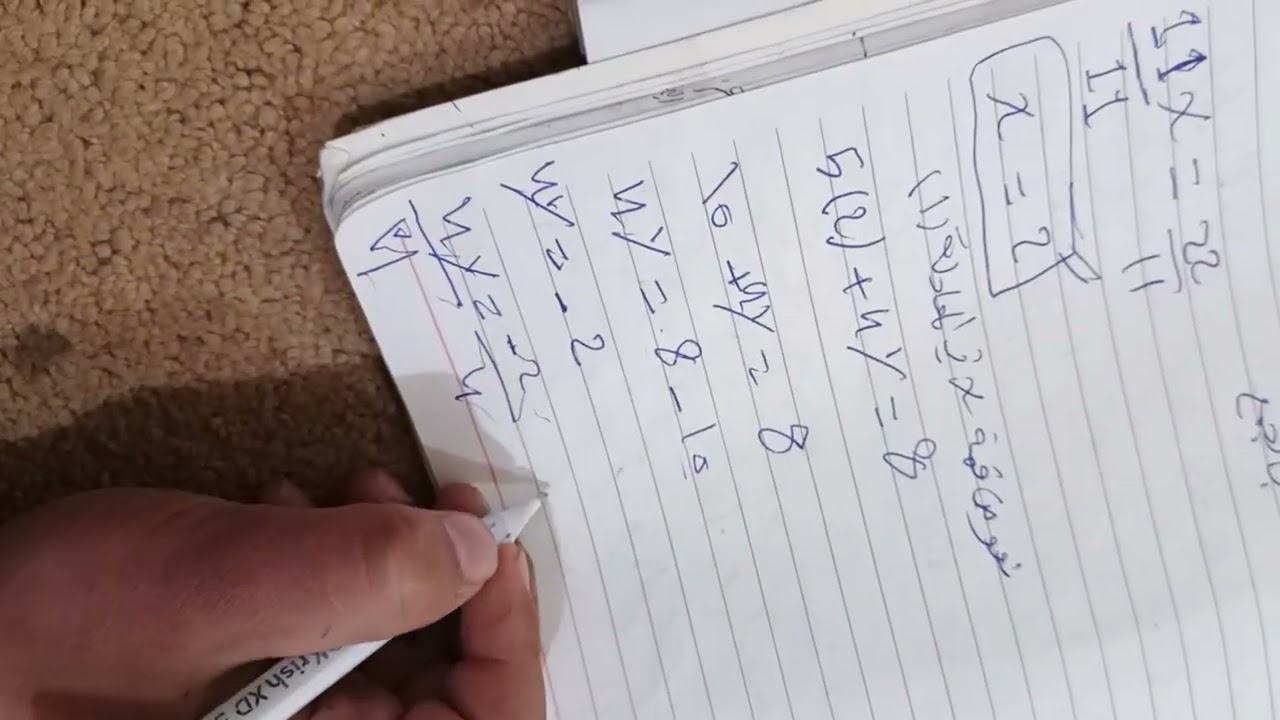 11x = 22
11 11
x = 2
نعوض قيمة x في المعادلة (1)
5(2) + 4y = 8
10 + 4y = 8
4y = 8 - 10
4y = - 2
4y = -2
4 4
KrishXD